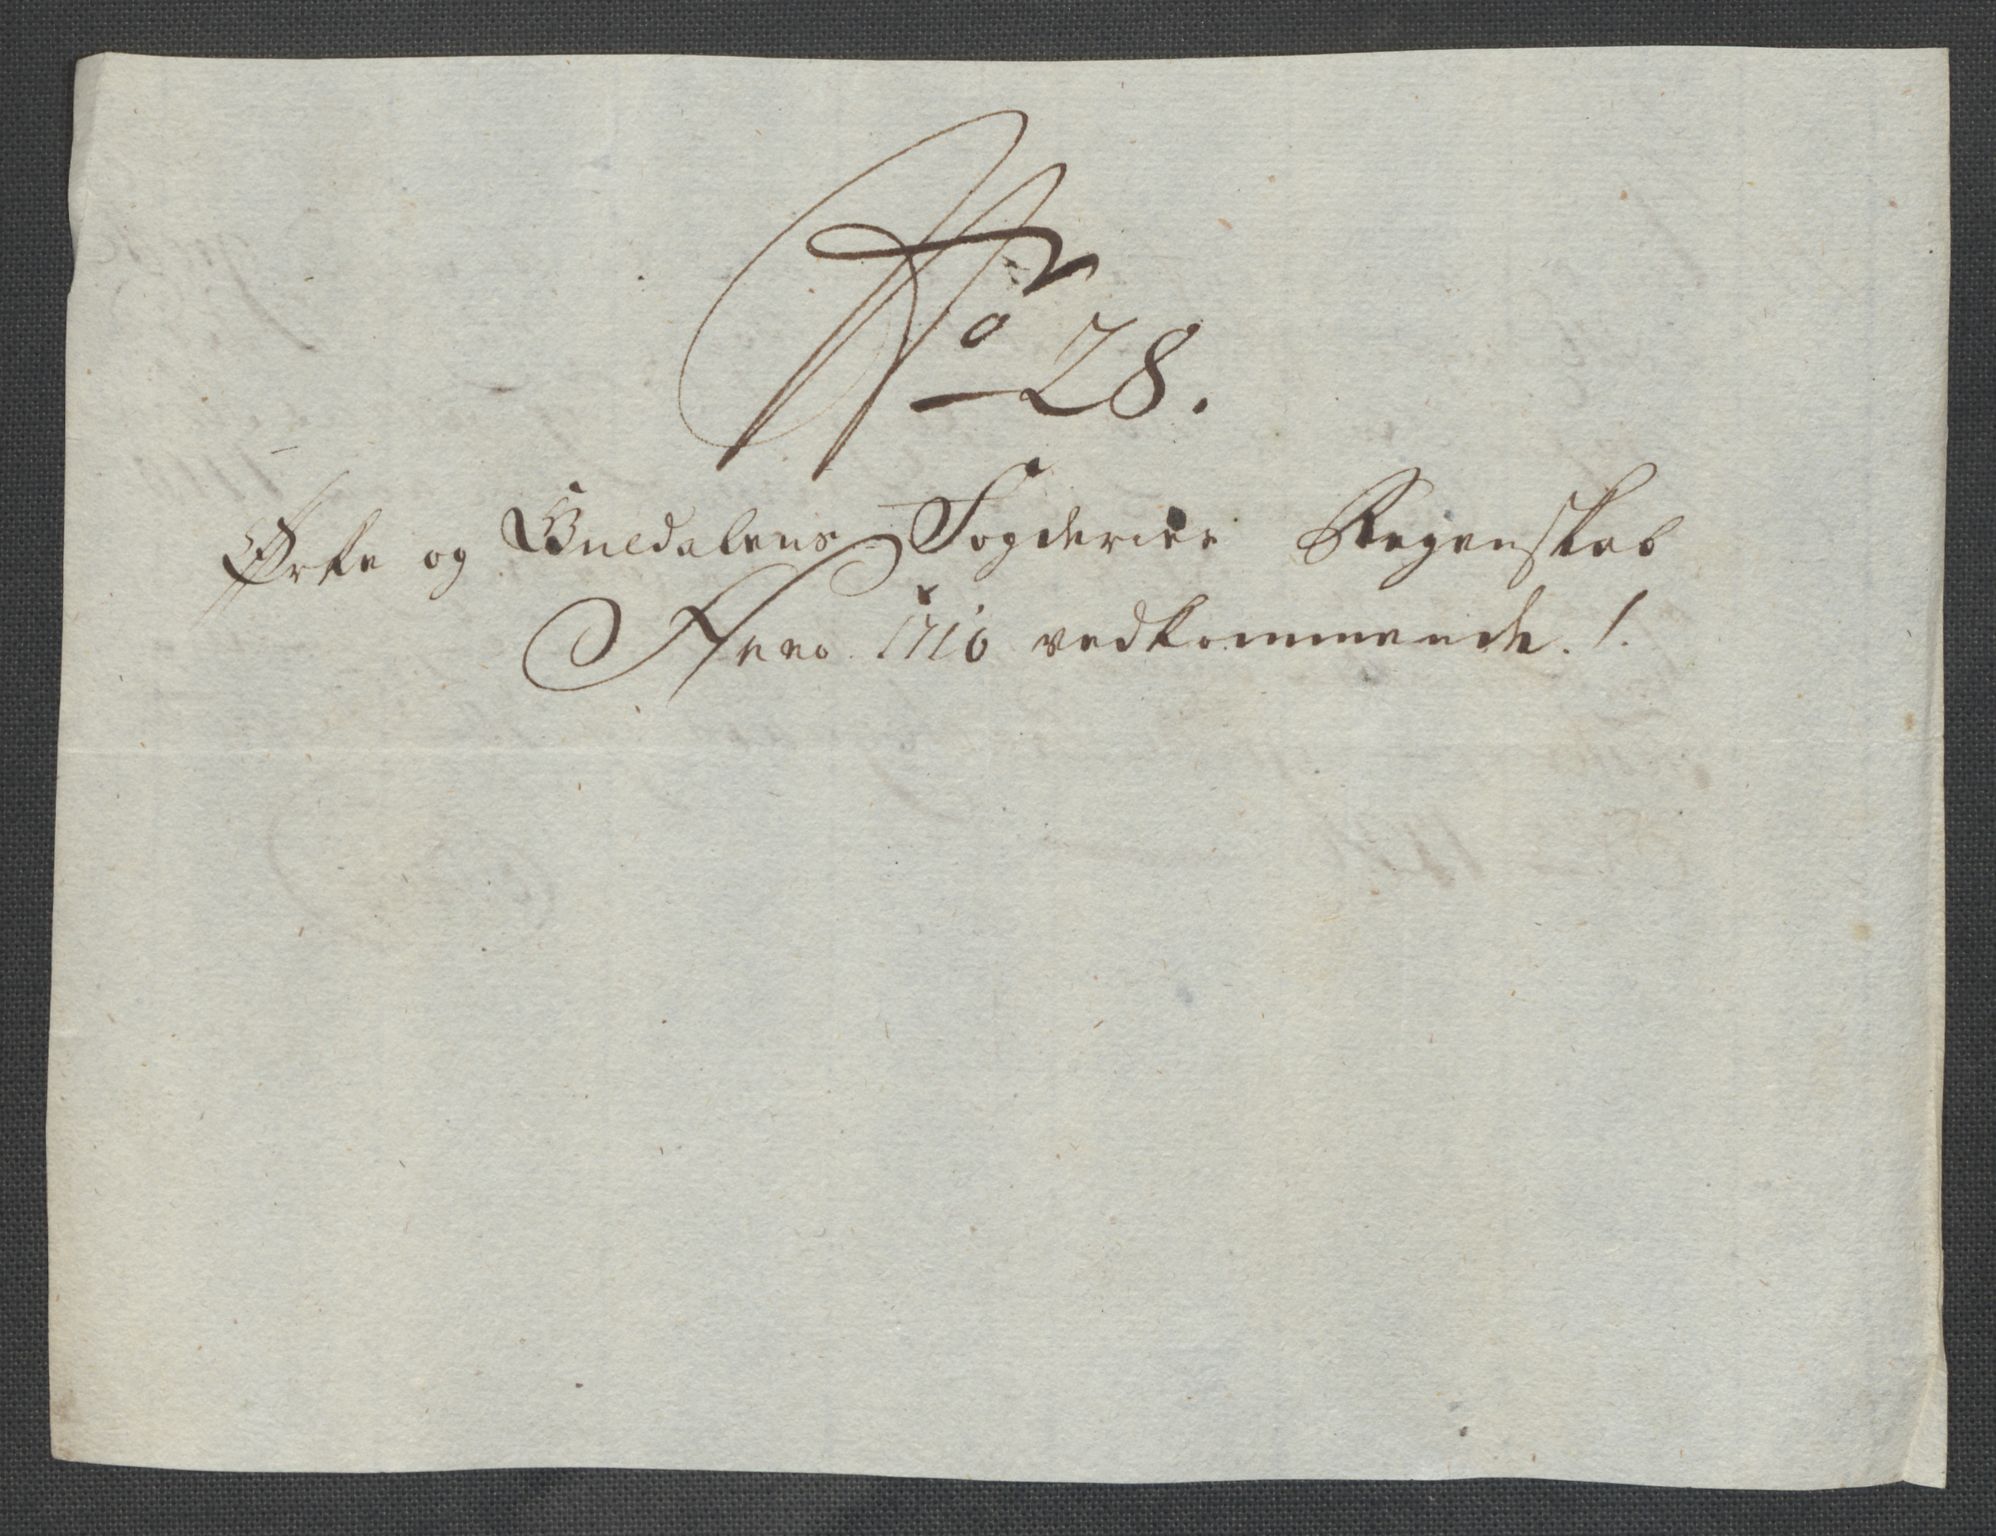 No 28.
Ørke og Guldalens Fogderies Regenskab
Anno 1710 vedkommende. /.